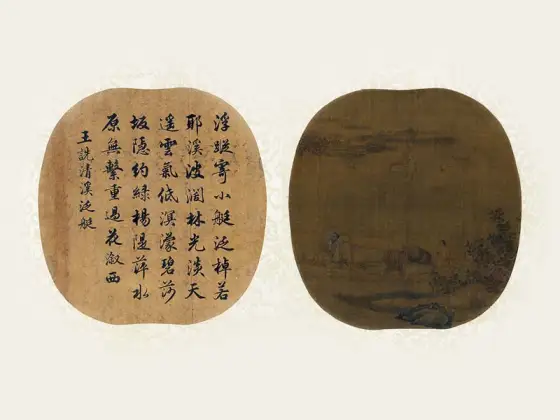 浮蹤寄小艇泛棹若
耶溪波闊林光淡天
遥雲氣低溟濛碧莎
坂隱約綠楊隄萍水
原無繫重過花溆西
王詵清溪泛艇